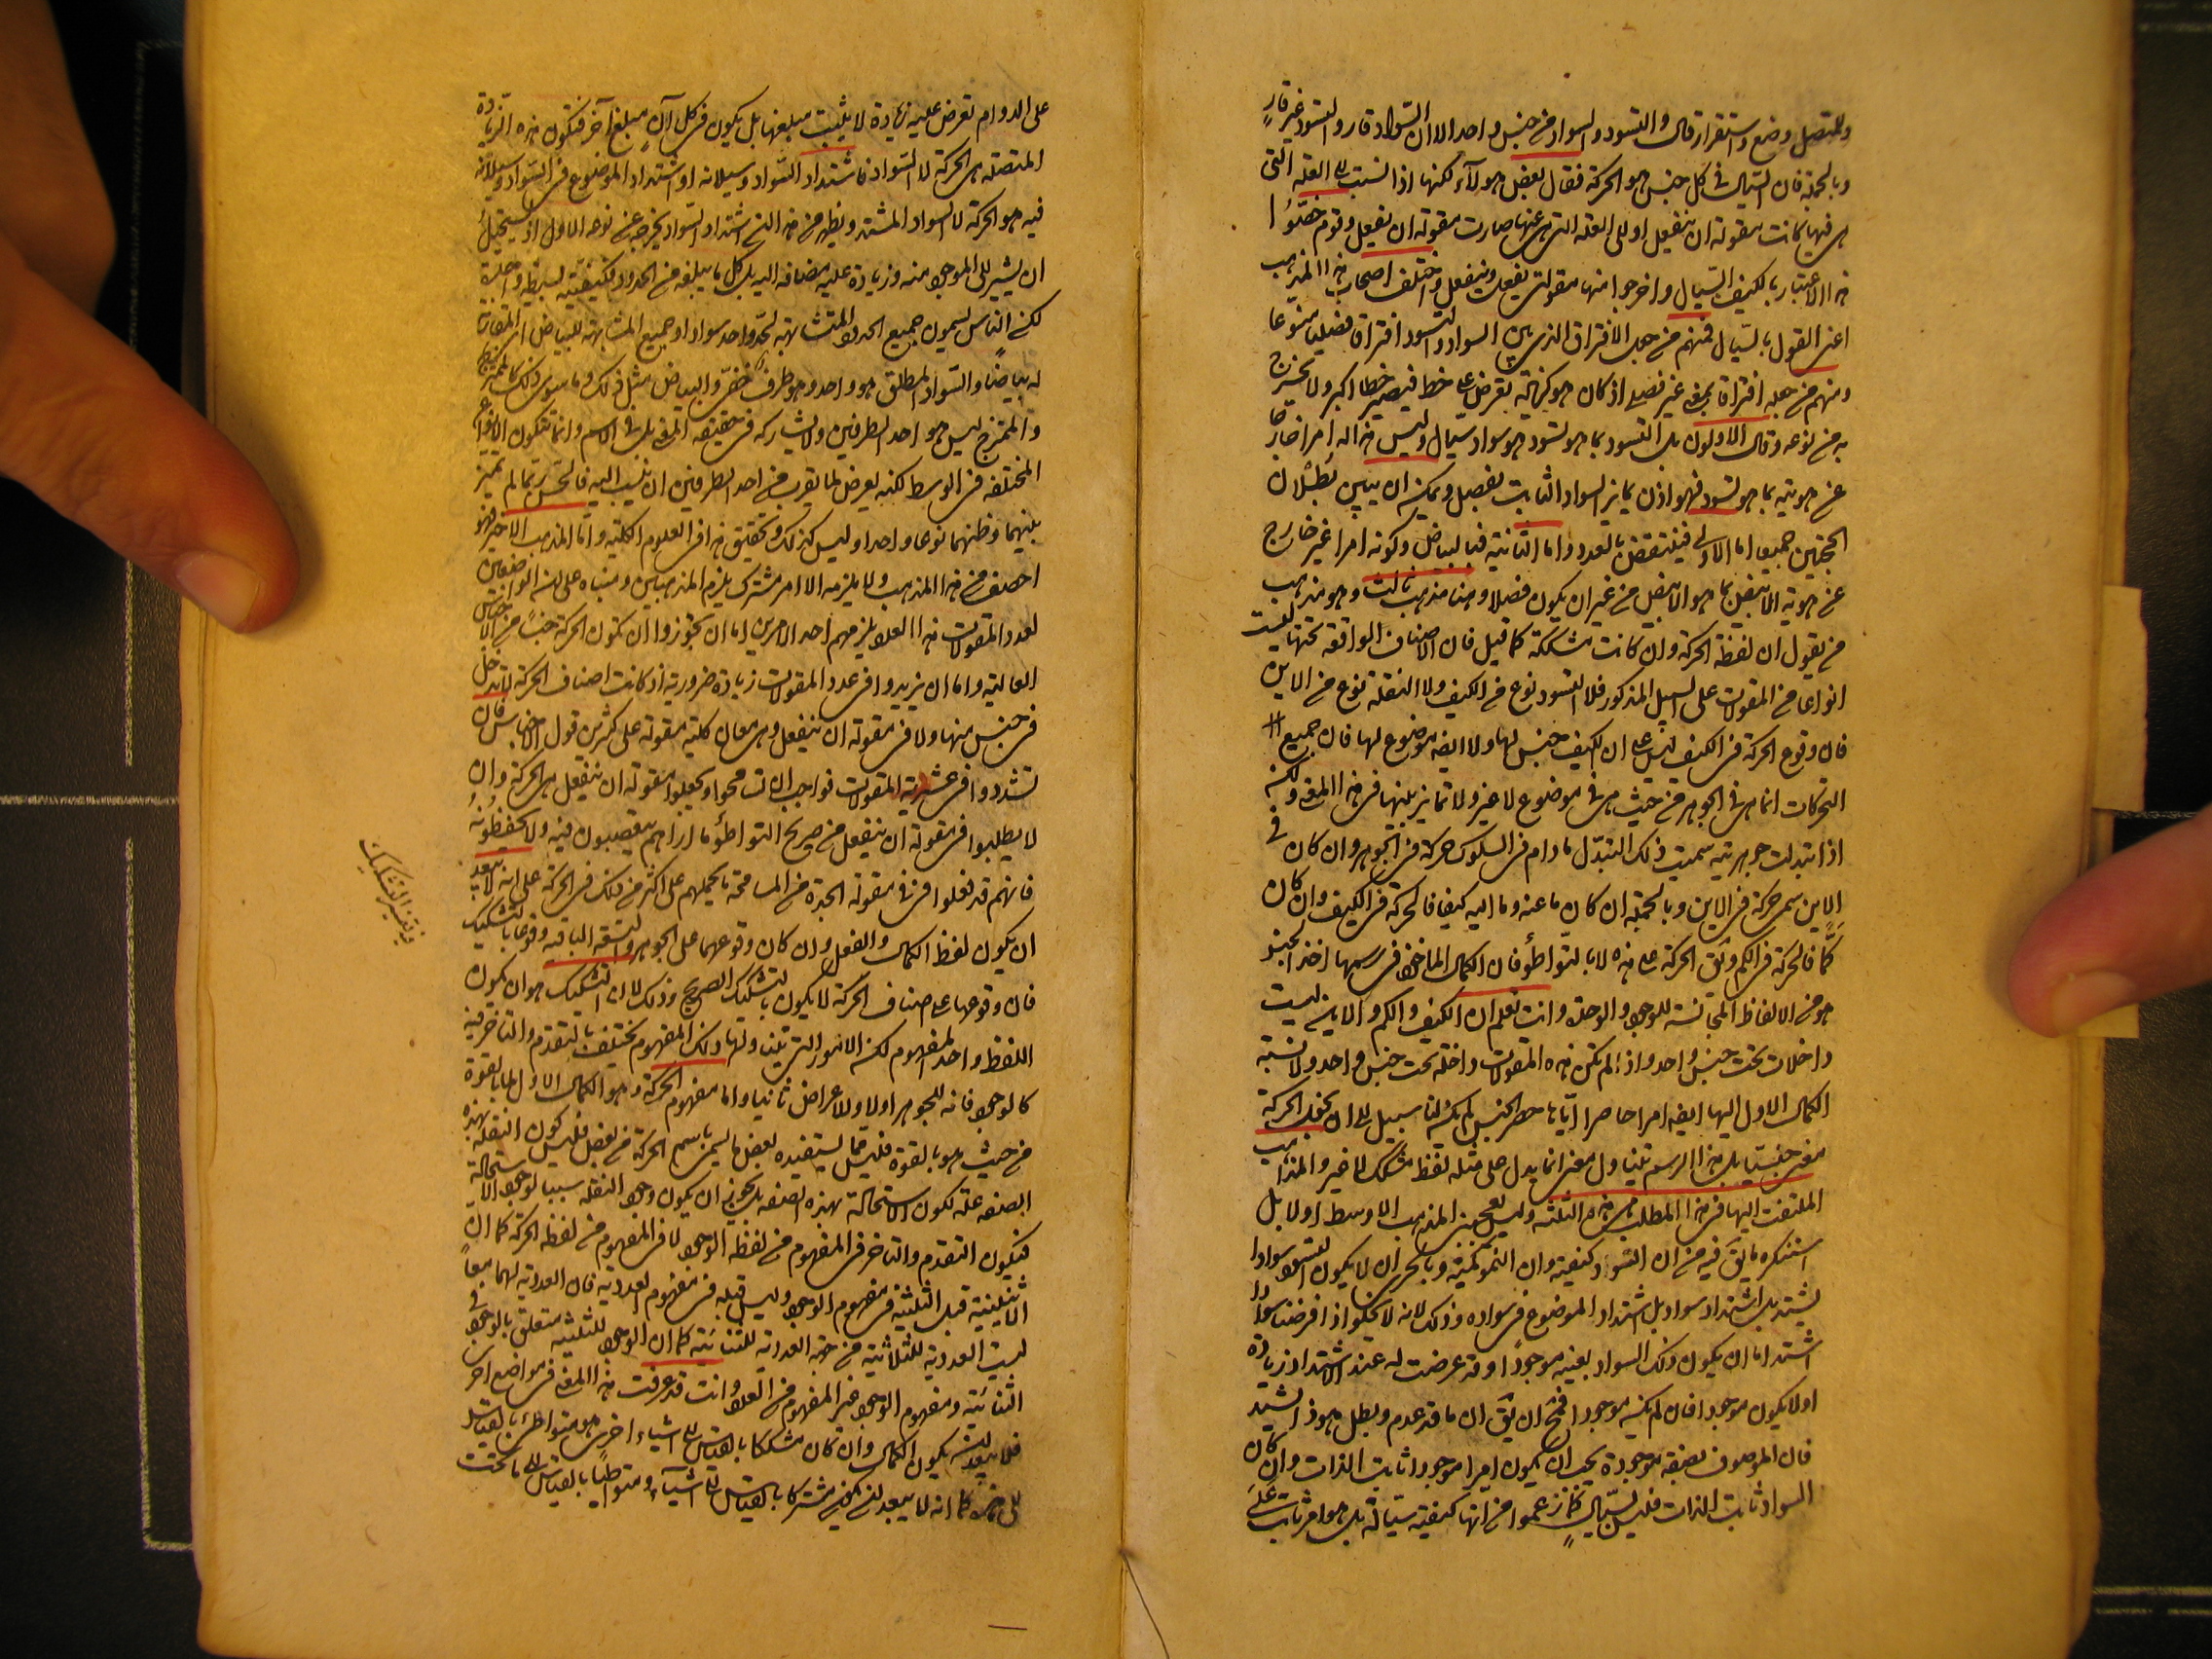 وللمتصل وضع واستقرار قال والتسود والسواد من جنس واحد الا ان السواد قار والتسود غير قار
وبالجملة فان السيال في كل جنس هو الحركة فقال بعض هولاء لكنها اذا نسبت الى العلة التى
هى فيها كانت مقولة ان ينفعل او الى العلة التى هى عنها صارت مقولة ان يفعل وقوم خصوا
هذا الاعتبار بالكيف السيال واخرجوا منها مقولتى يفعل وينفعل واختلف اصحاب هذا المذهب
اعنى القول بالسيال فمنهم من جعل الافتراق الذى بين السواد والتسود افتراقا فصليا منوعا
ومنهم من جعله افتراقا بمعنى غير فصلى اذ كان هو كزيادة يعرض على خط فيصير خطا اكبر ولا يخرج
به من نوعه وقال الاولون بل التسود بما هو تسود هو سواد سيال وليس هذا له امرا خارجا
عن هويته بما هو تسود فهو اذن يمايز السواد الثابت بفصل ويمكن ان يبين بطلان
الحجتين جميعا اما الاولى فينتقض بالعدد واما الثانية فبالبياض وكونه امرا غير خارج
عن هوية الابيض بما هو الابيض من غير ان يكون فصلا وهنا مذهب ثالث وهو مذهب
من يقول ان لفظة الحركة وان كانت مشككة كما قيل فان الاصناف الواقعة تحتها ليست
انواعا من المقولات على السبيل المذكور فلا التسود نوع من الكيف ولا النقلة نوع من الاين
فان وقوع الحركة فى الكيف ليس على ان الكيف جنس لها ولا ايضا موضوع لها فان جميع
الحركات انما هى فى الجوهر من حيث هى فى موضوع لا غير ولا تمايز بينها فى هذا المعنى ولكنه
اذا تبدلت جوهريته سميت ذلك التبدل ما دام فى السلوك حركة فى الجوهر وان كان فى
الاين سمى حركة فى الاين وبالجملة ان كان ما عنه وما اليه كيفا فالحركة فى الكيف وان كان
كما فالحركة فى الكم ويق الحركة على هذه لا بالتواطؤ فان الكمال الماخوذ فى رسمها اخذ الجنس
هو من الالفاظ المجانسة للوجود والوحدة وانت تعلم ان الكيف والكم والاين ليست
داخلات تحت جنس واحد واذا لم تكن هذه المقولات داخلة تحت جنس واحد ولا نسبة
الكمال الاول اليها ايضا امرا حاصرا اياها حصر الجنس لم يكن لنا سبيل الى ان نجعل الحركة
معنى جنسيا بل هذا الرسم يتناول معنى انما يدل على مثله لفظ مشكك لا غير والمذاهب
الملتفت اليها فى هذا المطلب هى هذه الثلثة وليس يعجبنى المذهب الاوسط اولا بل
استنكره ما يق فيه من ان التسود كيفية وان النمو كمية وبالحرى ان لا يكون التسود سوادا
يشتد بل اشتداد سواد بل اشتداد الموضوع فى سواده وذلك لانه لا يخلو اذا فرضنا سوادا
اشتد اما ان يكون ذلك السواد بعينه موجودا وقد عرضت له عند الاشتداد زيادة
او لا يكون موجودا فان لم يكن موجودا فمح ان يق ان ما قد عدم وبطل هو ذا يشتد
فان الموصوف بصفة موجودة يجب ان يكون امرا موجودا ثابت الذات وان كان
السواد ثابت الذات فليس بسيال كما زعموا من انها كيفية سيالة بل هو امر ثابت على
على الدوام تعرض عليه زيادة لا يثبت مبلغها بل يكون فى كل آن مبلغ آخر فتكون هذه الزيادة
المتصلة هى الحركة لا السواد فاشتداد السواد وسيلانه او اشتداد الموضوع فى السواد وسيلانه
فيه هو الحركة لا السواد المشتد ويظهر من هذا ان اشتداد السواد يخرجه عن نوعه الاول اذ يستحيل
ان يشير الى الموجود منه وزيادة عليه مضافة اليه بل كل ما يبلغه من الحدود فكيفيته بسيطة واحدة
لكن الناس يسمون جميع الحدود المتشابهة لحد واحد سوادا وجميع المشابهة للبياض اى المقاربة
له بياضا والسواد المطلق هو واحد وهو طرف خفى والبياض مثل ذلك وما سوى ذلك كالممتزج
والممتزج ليس هو احد الطرفين ولا يشاركه فى حقيقة المعنى بل فى الاسم وانما تتكون الانواع
المختلفة فى الوسط لكنه يعرض لما يقرب من احد الطرفين ان ينسب اليه فالحس ربما لم يميز
بينهما وظنهما نوعا واحدا وليس كذلك وتحقيق هذا فى العلوم الكلية واما المذهب الاخير فهو
احصف من هذا المذهب ولا يلزمه الا امر مشترك يلزم المذهبين ومبناه على ان الواضعين
لعدد المقولات هذا العدد يلزمهم احد الامرين اما ان يجوزوا ان تكون الحركة جنسا من الاجناس
العالية واما ان يزيدوا فى عدد المقولات زيادة ضرورية اذ كانت اصناف الحركة لا تدخل
فى جنس منها ولا فى مقولة ان ينفعل وهى معان كلية مقولة على كثيرين قول الاجناس فان
تشددوا فى عشرية المقولات فواجب ان يسامحوا ويجعلوا مقولة ان ينفعل هى الحركة وان
لا يطلبوا فى مقولة ان ينفعل من صريح التواطؤ ما اراهم يتعصبون فيه ولا يحفظونه
فانهم قد فعلوا فى مقولة الجدة من المسامحة ما يحملهم على اكثر من ذلك فى الحركة على انه لا يبعد
ان يكون لفظ الكمال والفعل وان كان وقوعهما على الجوهر والتسعة الباقية وقوعا بالتشكيك
فان وقوعها على اصناف الحركة لا يكون بالتشكيك الصريح وذلك لان التشكيك هو ان يكون
اللفظ واحد المفهوم لكن الامور التى يتناولها ذلك المفهوم يختلف بالتقدم والتاخر فيه
كالوجود فانه للجوهر اولا وللاعراض ثانيا واما مفهوم الحركة وهو الكمال الاول لما بالقوة
من حيث هو بالقوة فليس مما يستفيده بعض ما يسمى باسم الحركة من بعض فليس كون النقلة بهذه
الصفة علة لكون الاستحالة بهذه الصفة بل يجوز ان يكون وجود النقلة سببا لوجود الاستحالة
فيكون التقدم والتاخر فى المفهوم من لفظة الوجود لا فى المفهوم من لفظة الحركة كما ان
الاثنينية قبل الثلثية فى مفهوم الوجود وليس قبله فى مفهوم العددية فان العددية لهما معا
ليست العددية للثلاثية من جهة العددية للثنائية كما ان الوجود للثلثية متعلق بالوجود فى
الثنائية ومفهوم الوجود غير المفهوم من العدد وانت قد عرفت هذا المعنى فى مواضع اخرى
فلا يبعد ان يكون الكمال وان كان مشككا بالقياس الى اشياء اخرى هو متواطئ بالقياس
الى هذه كما انه لا يبعد ان يكون مشتركا بالقياس الى اشياء ومتواطيا بالقياس الى ما تحت
وتفسير التشكيك